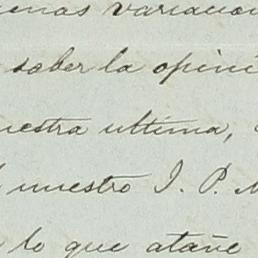 enas variacion
saber la opini
uestra ultima,
nuestro I. P. M
lo que atañe